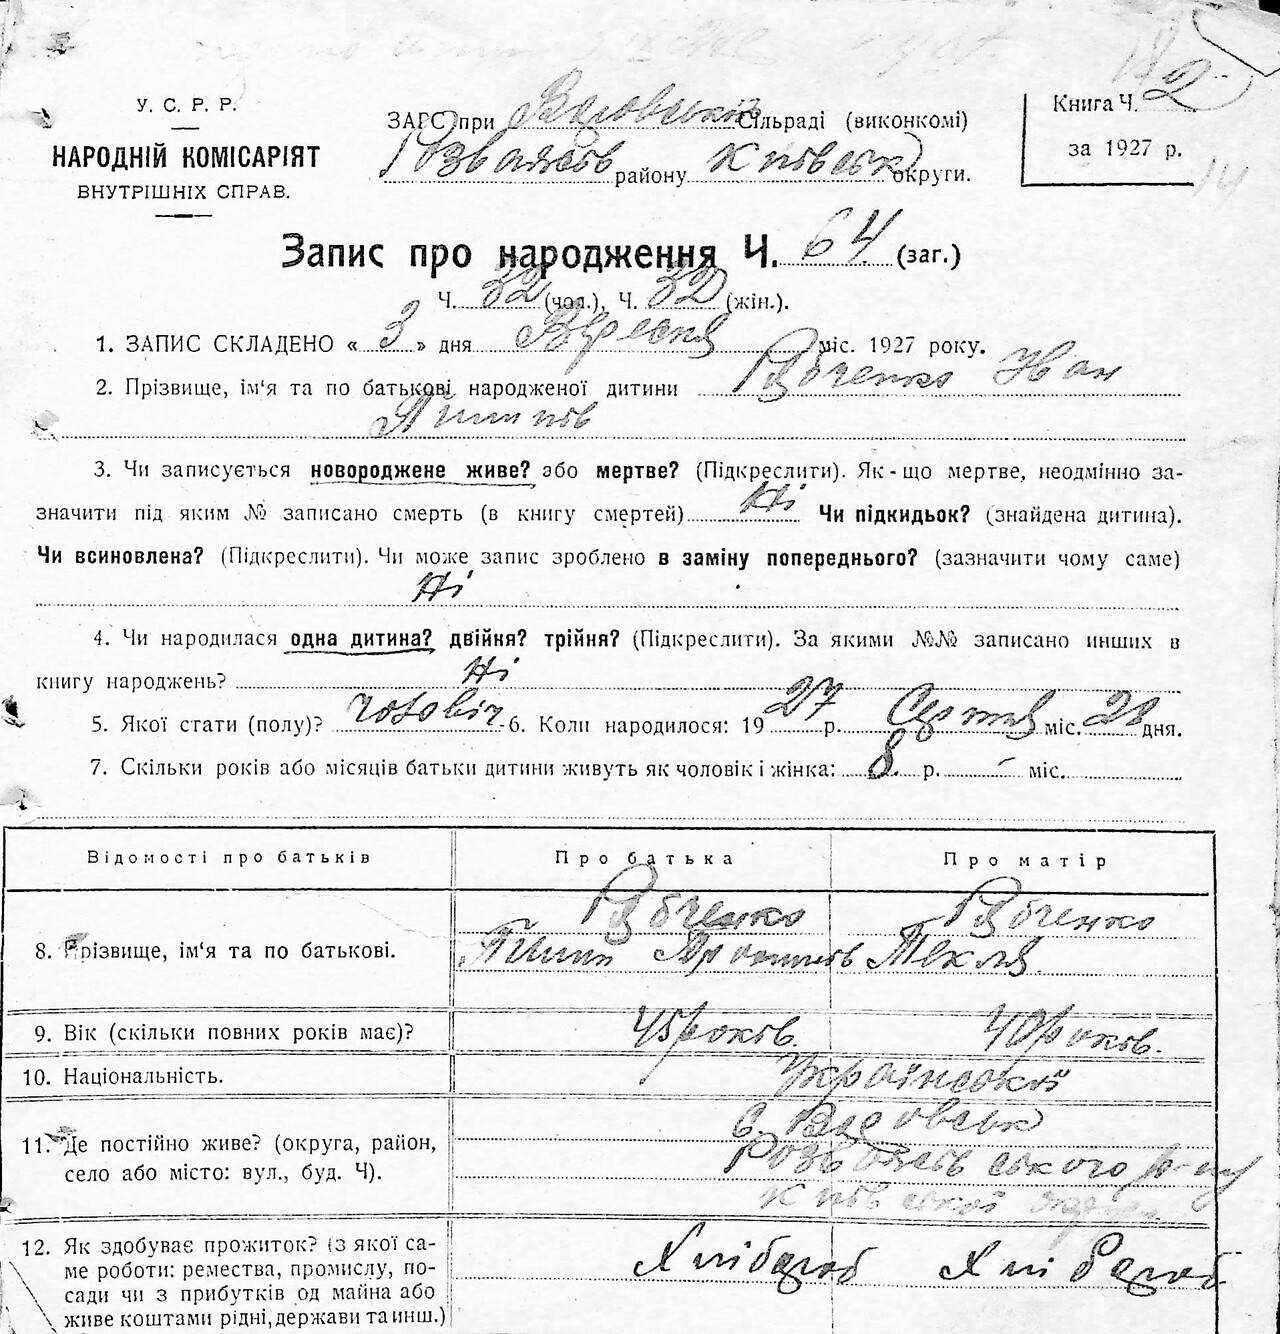 У. С. Р. Р.
НАРОДНІЙ КОМІСАРІЯТ
ВНУТРІШНІХ СПРАВ.
ЗАГС при Сільраді (виконкомі)
Розважів району Київськ округи.
Книга Ч. 2
за 1927 р.
14
Запис про народження Ч. 64 (заг.)
Ч. 32 (чол.), Ч. 32 (жін.).
1. ЗАПИС СКЛАДЕНО « 3 » дня Вересня міс. 1927 року.
2. Прізвище, ім‘я та по батькові народженої дитини Рябченко Іван
Пилипів
3. Чи записується новороджене живе? або мертве? (Підкреслити). Як-що мертве, неодмінно за-
значити під яким № записано смерть (в книгу смертей) Ні Чи підкидьок? (знайдена дитина).
Чи всиновлена? (Підкреслити). Чи може запис зроблено в заміну попереднього? (зазначити чому саме)
Ні
4. Чи народилася одна дитина? двійня? трійня? (Підкреслити). За якими №№ записано инших в
книгу народжень? Ні
5. Якої стати (полу)? чоловіч 6. Коли народилося: 1927 р. Серпня міс. 28 дня.
7. Скільки років або місяців батьки дитини живуть як чоловік і жінка: 8 р. - міс.
Відомості про батьків Про батька Про матір
Рябченко Рябченко
8. Прізвище, ім‘я та по батькові. Пилип Текля
9. Вік (скільки повних років має)? 45 років. 40 років.
10. Національність. Української
с.
11. Де постійно живе? (округа, район, Розважівського р-ну
село або місто: вул., буд. Ч). Київської округи
12. Як здобуває прожиток? (з якої са- Хлібороб Хлібороб
ме роботи: ремества, промислу, по-
сади чи з прибутків од майна або
живе коштами рідні, держави та инш.)